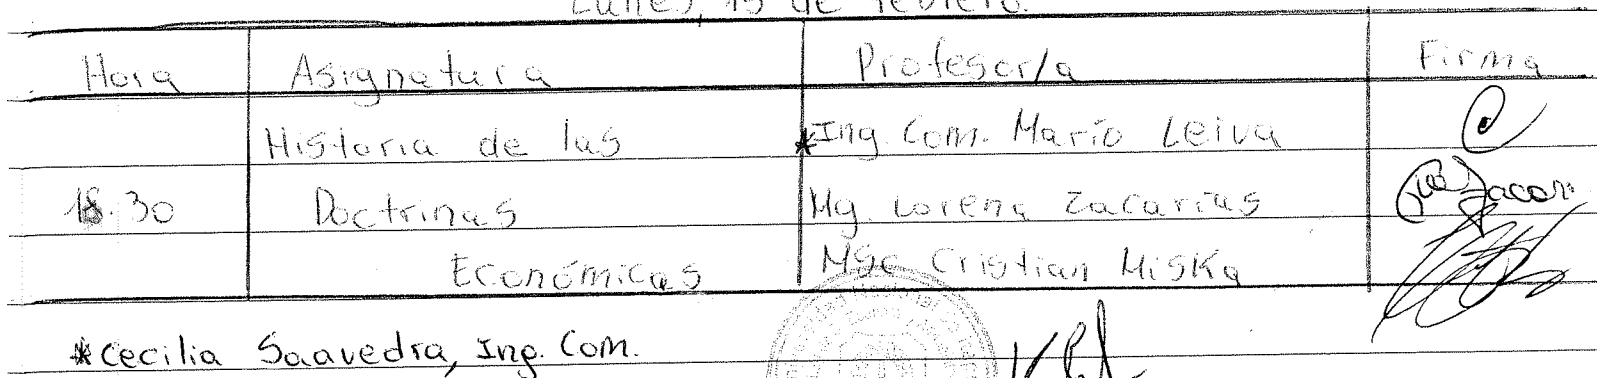 Lunes, 15 de febrero.
Hora Asignatura Profesor/a Firma
Historia de las *Ing. Com. Mario Leiva
18:30 Doctrinas Mg. Lorena Zacarías
Económicas MSc Cristian Miska
*Cecilia Saavedra, Ing. Com.